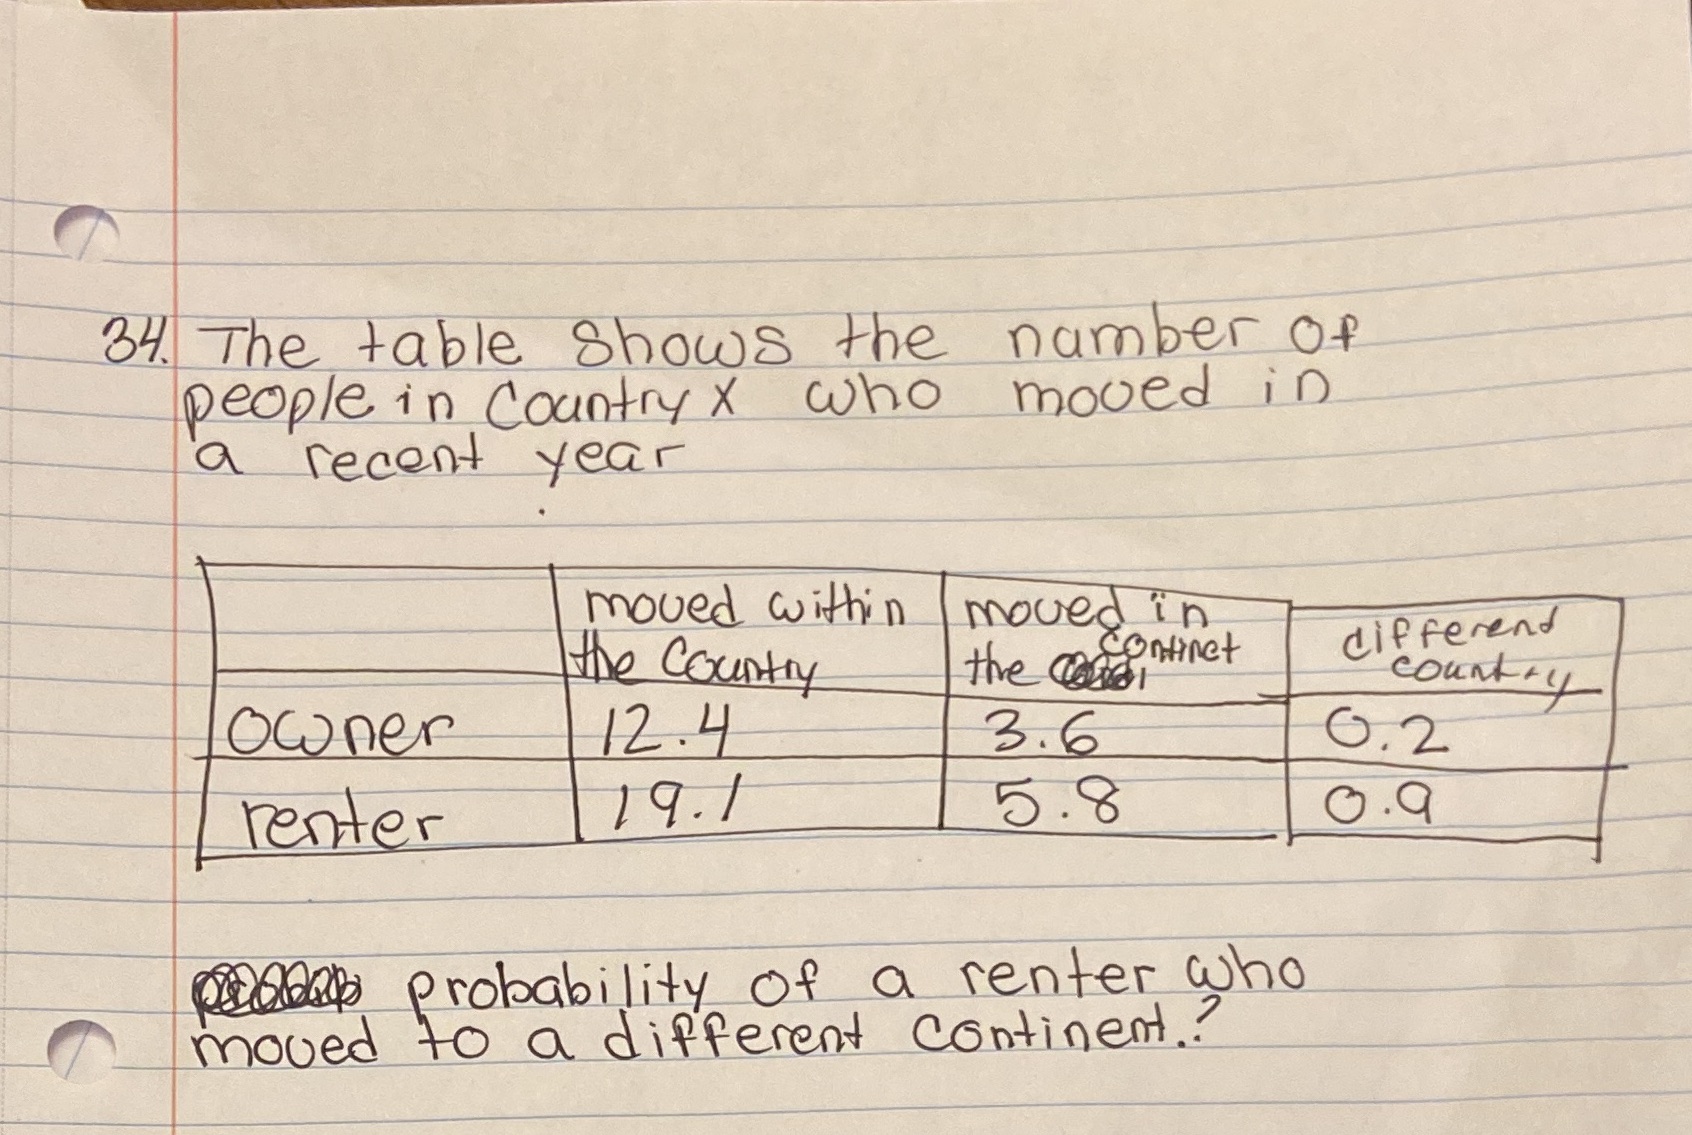 34. The table shows the number of
people in Country X who moved in
a recent year
moved within
the Country
moved in
the continct
differend
country
owner 12.4 3.6 0.2
renter 19.1 5.8 0.9
probability of a renter who
moved to a different continent.?